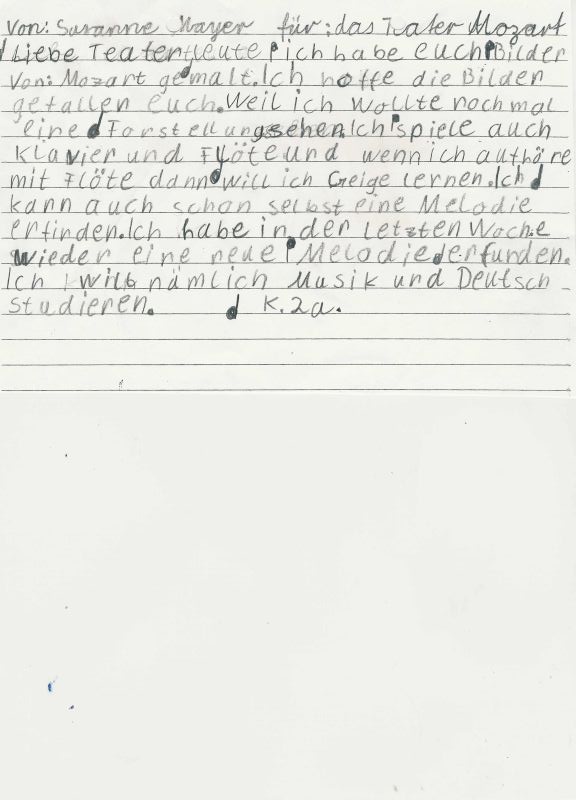 Von: Susanne Mayer für: das Teater Mozart
Liebe Teaterleute ich habe euch Bilder
Von: Mozart gemalt. Ich hoffe die Bilder
gefallen euch. Weil ich wollte nochmal
eine Forstellung sehen. Ich spiele auch
Klavier und Flöte und wenn ich aufhöre
mit Flöte dann will ich Geige lernen. Ich
kann auch schon selbst eine Melodie
erfinden. Ich habe in der letzten Woche
wieder eine neue Melodie erfunden.
Ich will nämlich Musik und Deutsch
studieren. K. 2a.